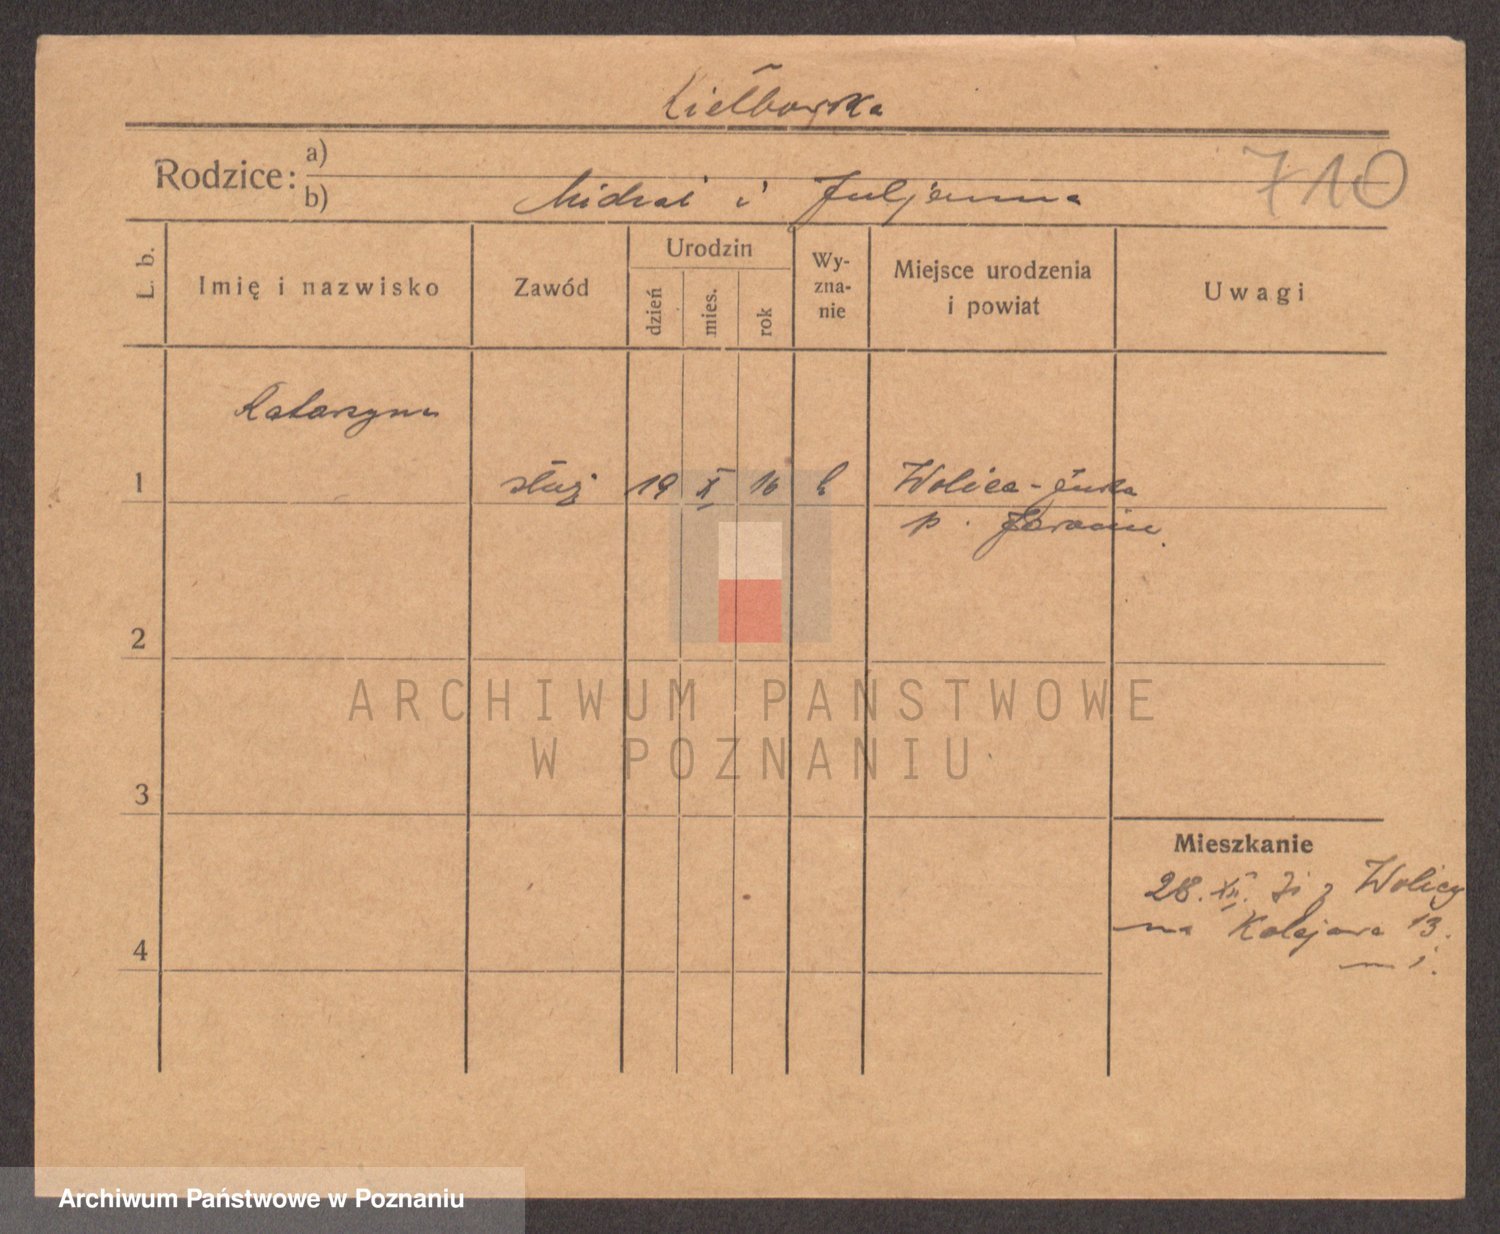 Kiełbowska
Rodzice:
a)
b) Michał i Juljanna
710
L. b.
Imię i nazwisko
Zawód
Urodzin
dzień
mies.
rok
Wy-
zna-
nie
Miejsce urodzenia
i powiat
Uwagi
Katarzyna
1 służ 19 X 16 Wolica-
p. Jarocin.
2
ARCHIWUM PAŃSTWOWE
W POZNANIU
3
Mieszkanie
28. XII. z Wolicy
na Kolejowa 13.
4
Archiwum Państwowe w Poznaniu